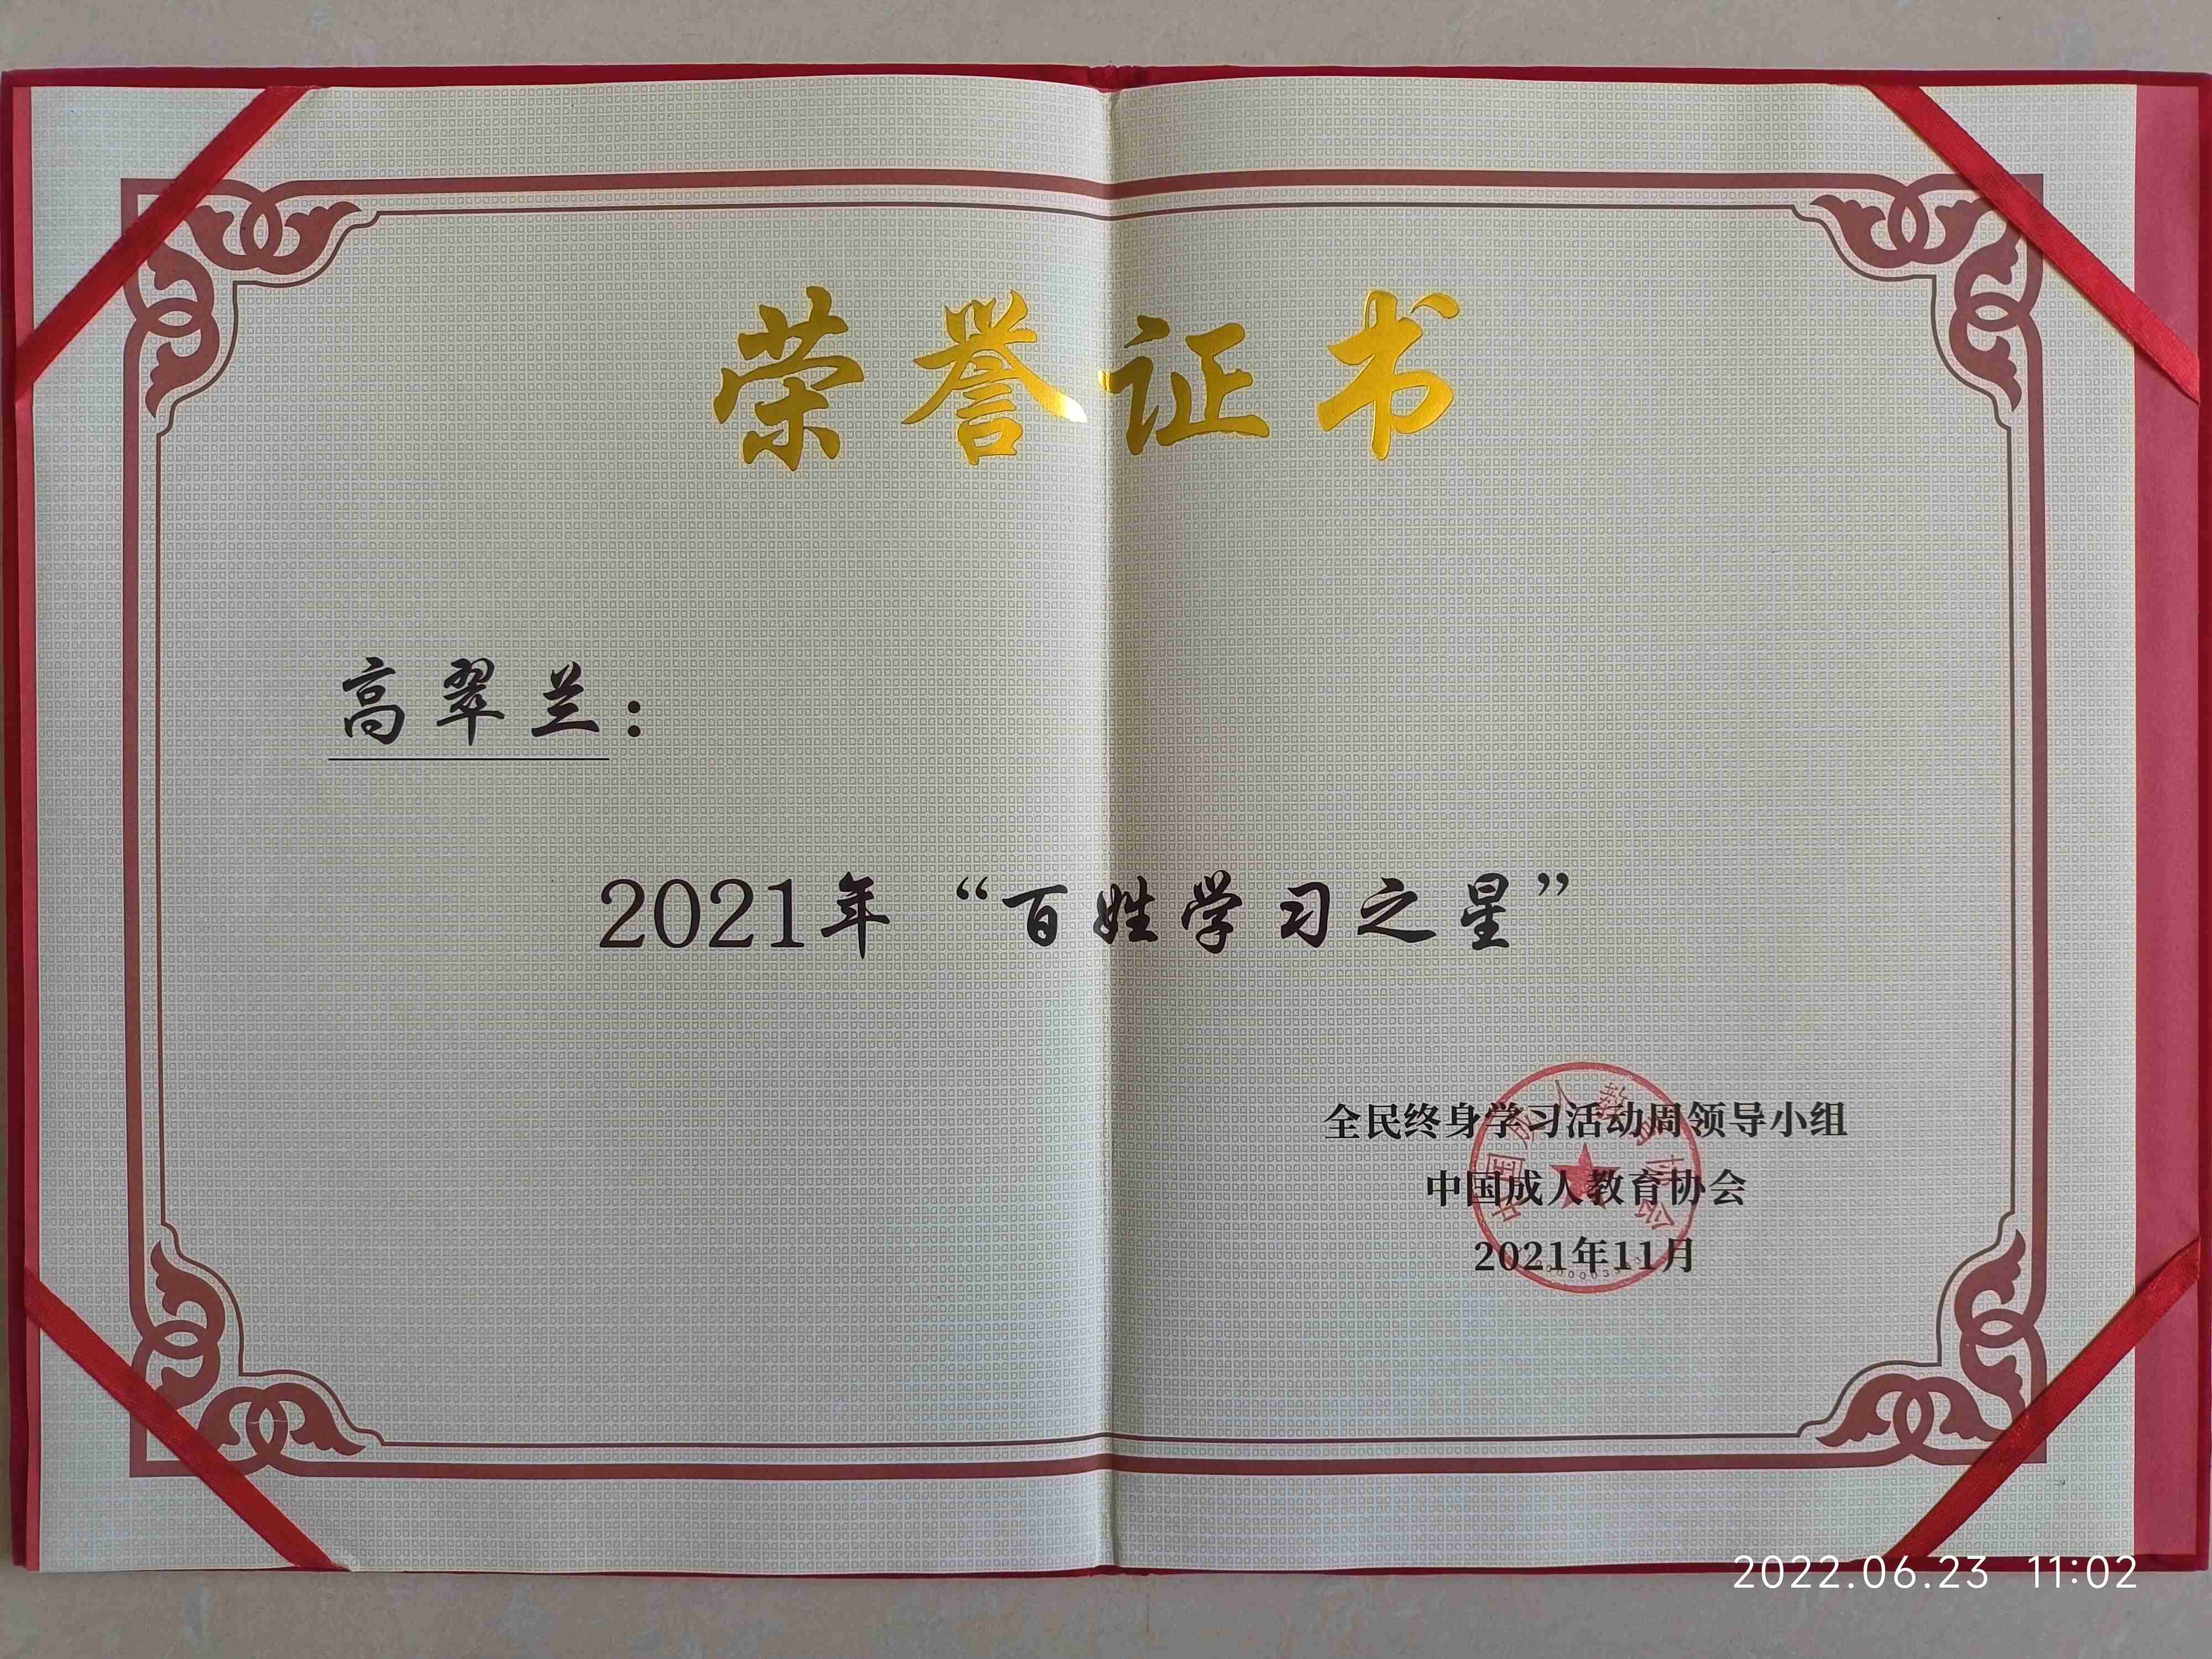 荣誉证书
高翠兰：
2021年“百姓学习之星”
全民终身学习活动周领导小组
中国成人教育协会
2021年11月
中国成人教育协会
2022.06.23 11:02